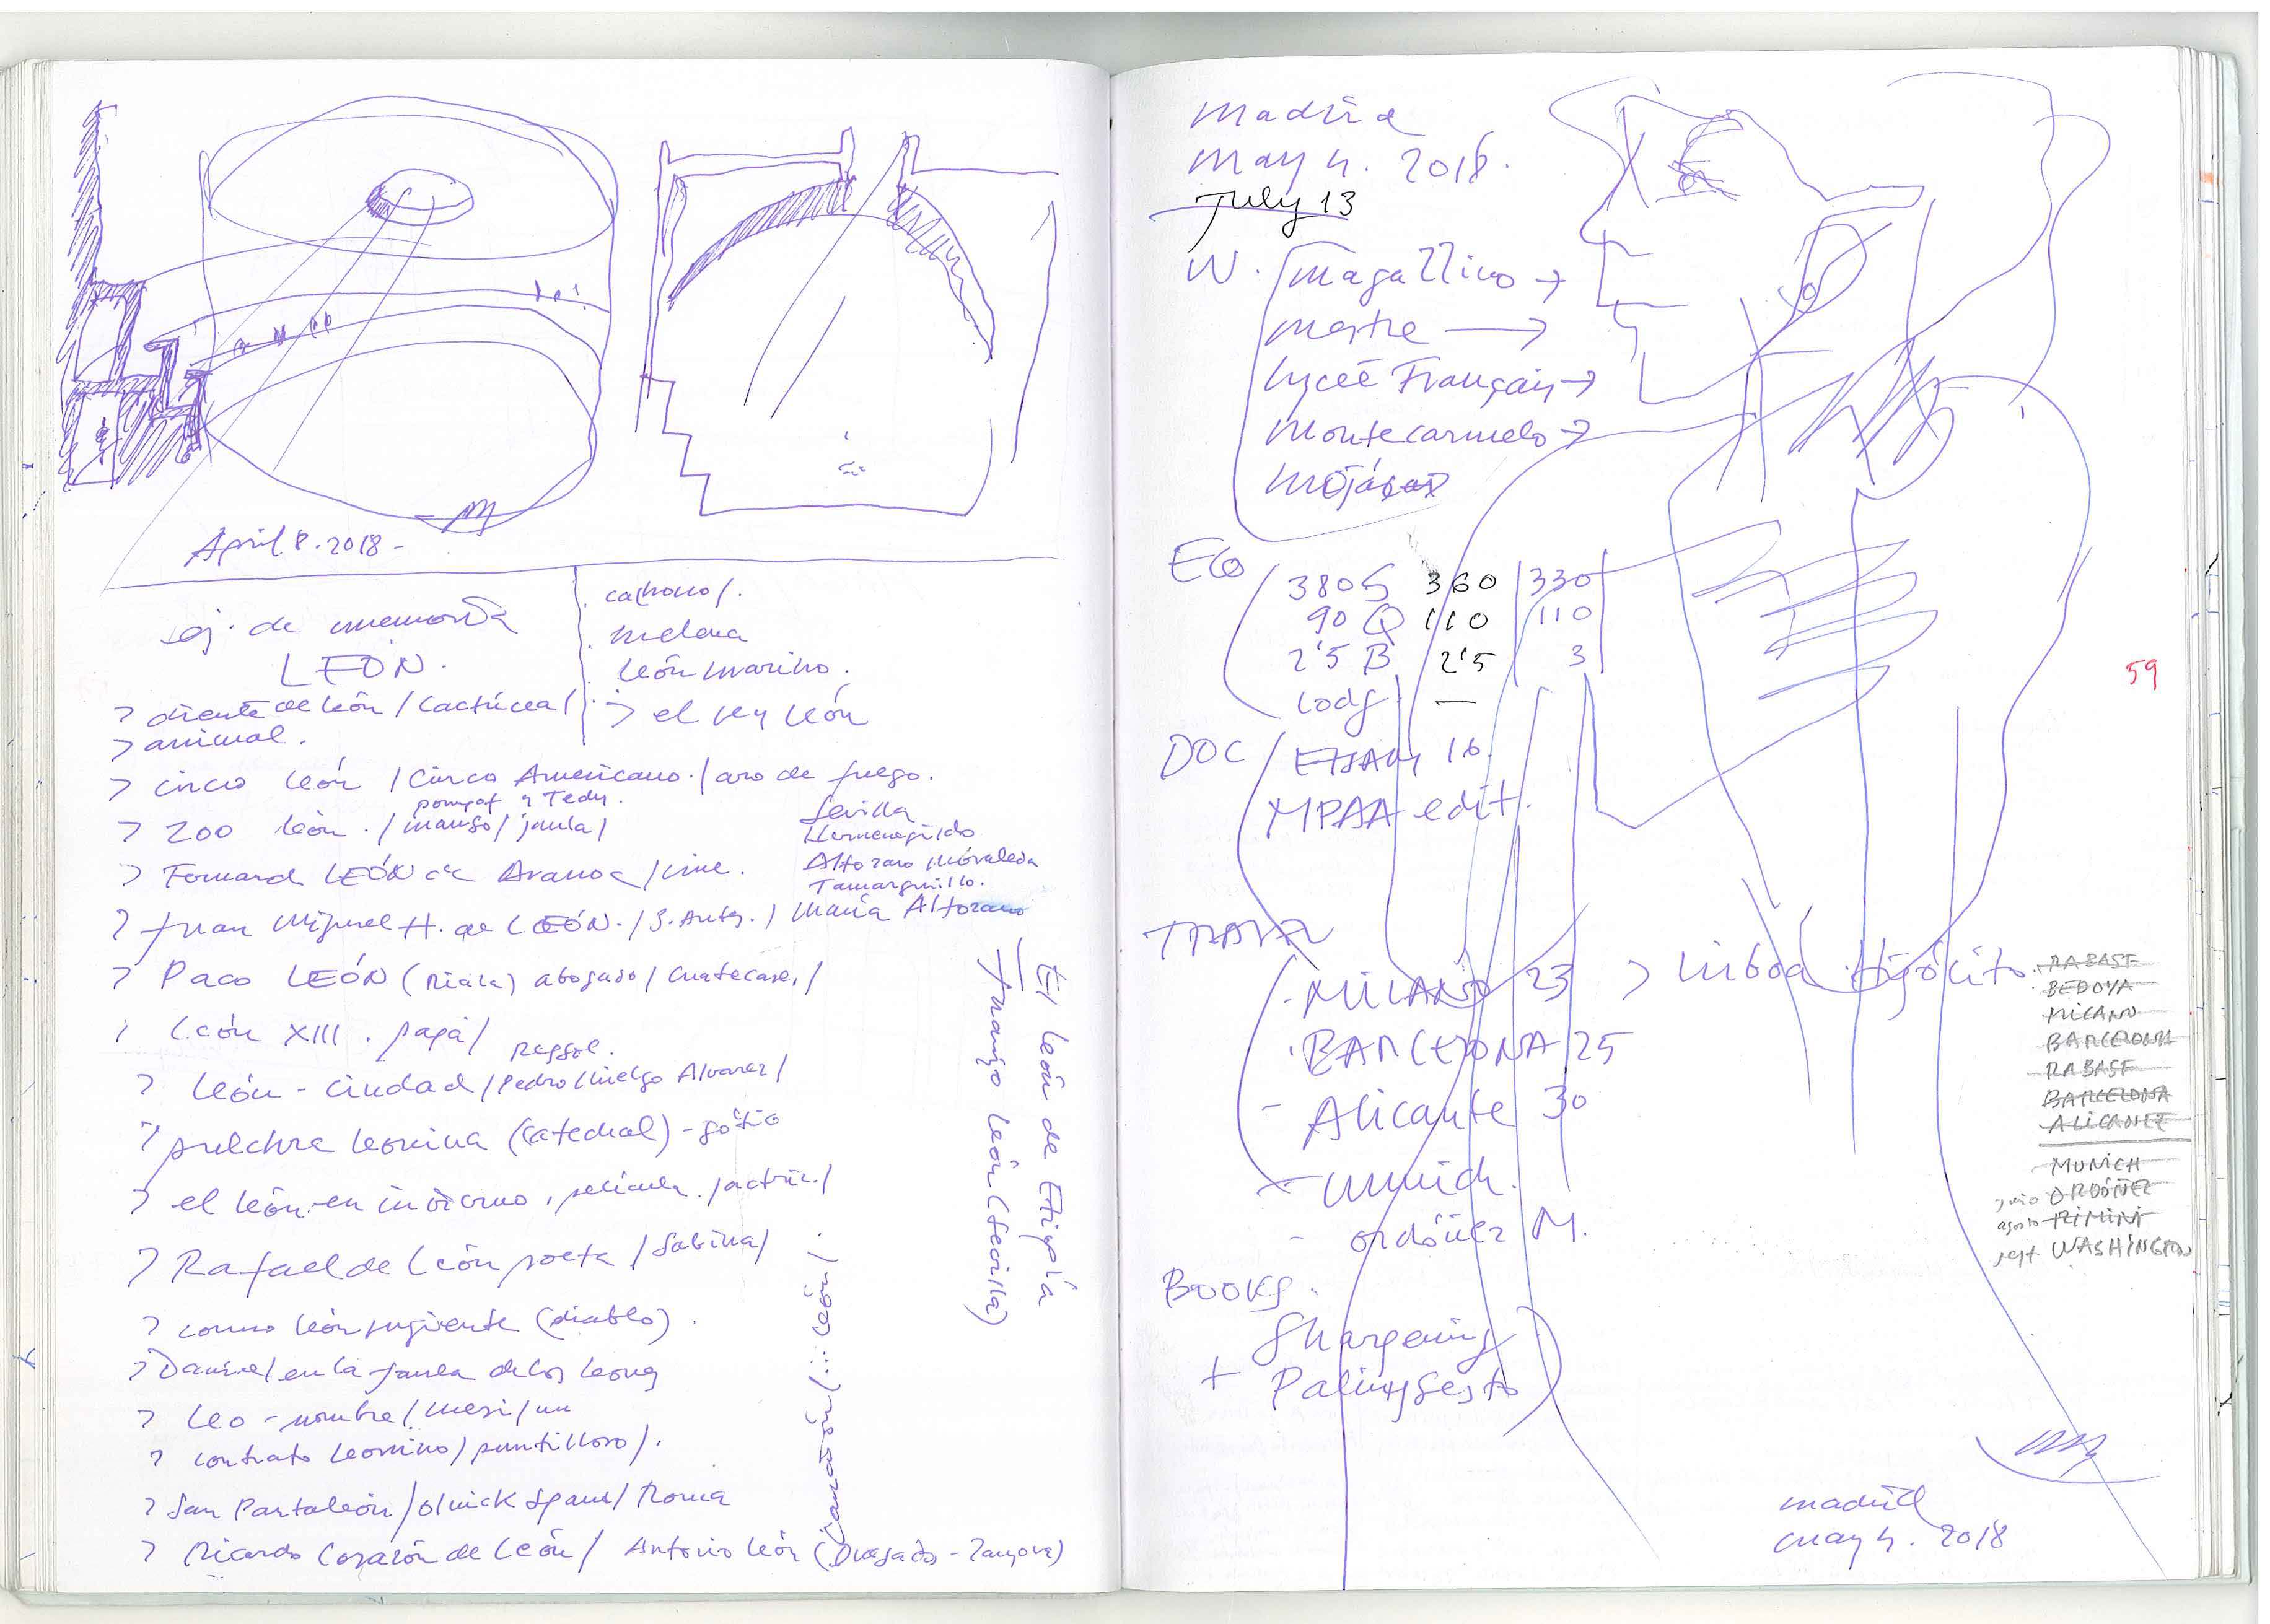 April 8. 2018 -
ej. de memoria
LEÓN.
cachorro/.
melena
león marino.
> el rey león
> diente de león /
> animal.
> circo león / Circo Americano. / aro de fuego.
> zoo león. / manso / jaula /
> LEÓN de Aranoa / cine.
Sevilla
Hermenegildo
Altozano
Tamarguillo.
> Juan Miguel H. de LEÓN. / S. Ant. / María Altozano
> Paco LEÓN (Riala) abogado /
León XIII. papa /
> León - ciudad / Pedro Hidelgo Alvarez /
> pulchre leonina (catedral) - gótico
> el león en invierno. película. / actriz. /
> Rafael de León poeta / Sabina /
> como león rugiente (diablo).
> Daniel en la jaula de los leones
> Leo - nombre / mesi /
> contrato leonino / puntilloso /.
> San Pantaleón / Roma
> Ricardo Corazón de León / Antonio León (Dragados - Zamora)
canasión / ... león /.
El león de Etiopía
Juanjo León (Sevilla)
Madrid
May 4. 2018.
July 13
W. Magallico →
mestre →
Lyceé Français →
Montecarmelo →
Mojácar
ECO
380 S 360 330
90 Q 110 110
2'5 B 2'5 3
Lodg —
DOC / ETSAM 16.
MPAA edit.
59
TRAVEL
- MILANO 23 > Lisboa Hipólito.
· BARCELONA 25
- Alicante 30
- Munich.
- ordóñez M.
RABASF
BEDOYA
MILANO
BARCELONA
RABASF
BARCELONA
ALICANTE
MUNICH
junio ORDÓÑEZ
agosto RIMINI
sept. WASHINGTON
BOOKS.
Sharpening
+ Palimpsesto
madrid
may 4. 2018